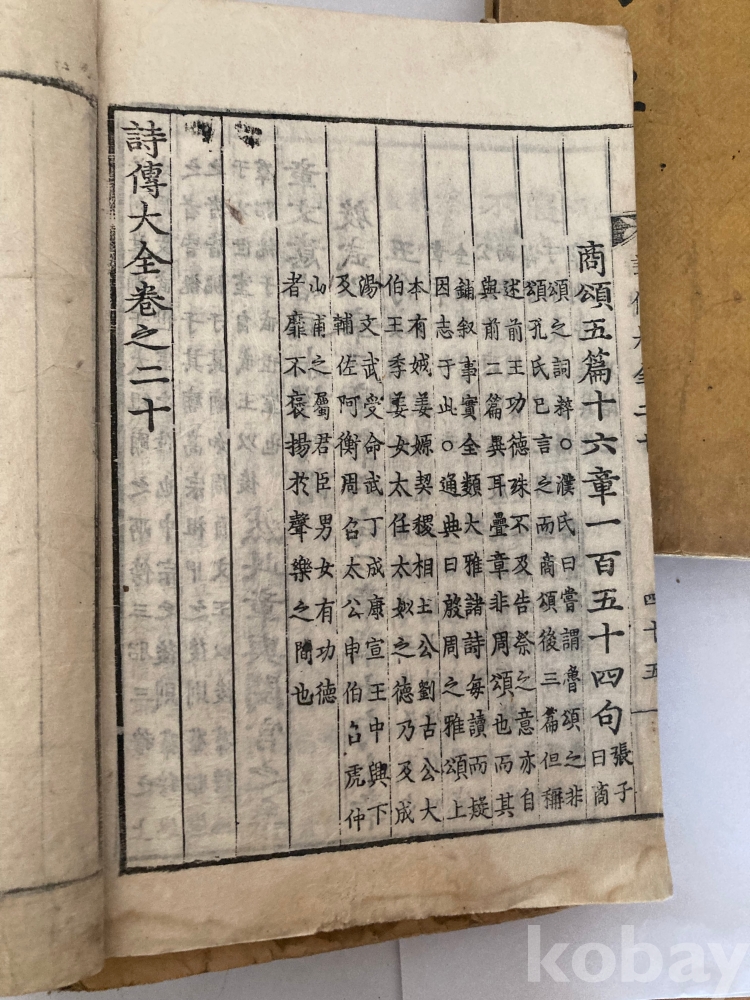 詩傳大全二十
四十五
商頌五篇十六章一百五十四句張子
曰商
頌之詞粹○濮氏曰嘗謂魯頌之非
頌孔氏已言之而商頌後三篇但稱
述前王功德殊不及告祭之意亦自
與前二篇異耳疊章非周頌也而其
鋪叙事實全類大雅諸詩每讀而疑
因志于此○通典曰殷周之雅頌上
本有娀姜嫄契稷相土公劉古公大
伯王季姜女太任太姒之德乃及成
湯文武受命武丁成康宣王中興下
及輔佐阿衡周召太公申伯召虎仲
山甫之屬君臣男女有功德
者靡不褒揚於聲樂之間也
詩傳大全卷之二十
kobay